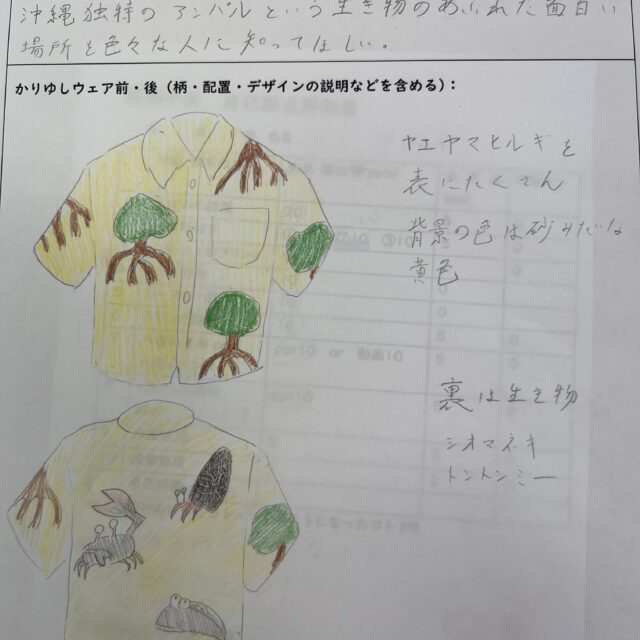 沖縄独特のアンパルという生き物のあふれた面白い
場所を色々な人に知ってほしい。
かりゆしウェア前・後（柄・配置・デザインの説明などを含める）：
ヤエヤマヒルギを
表にたくさん
背景の色は砂みたいな
黄色
裏は生き物
シオマネキ
トントンミー